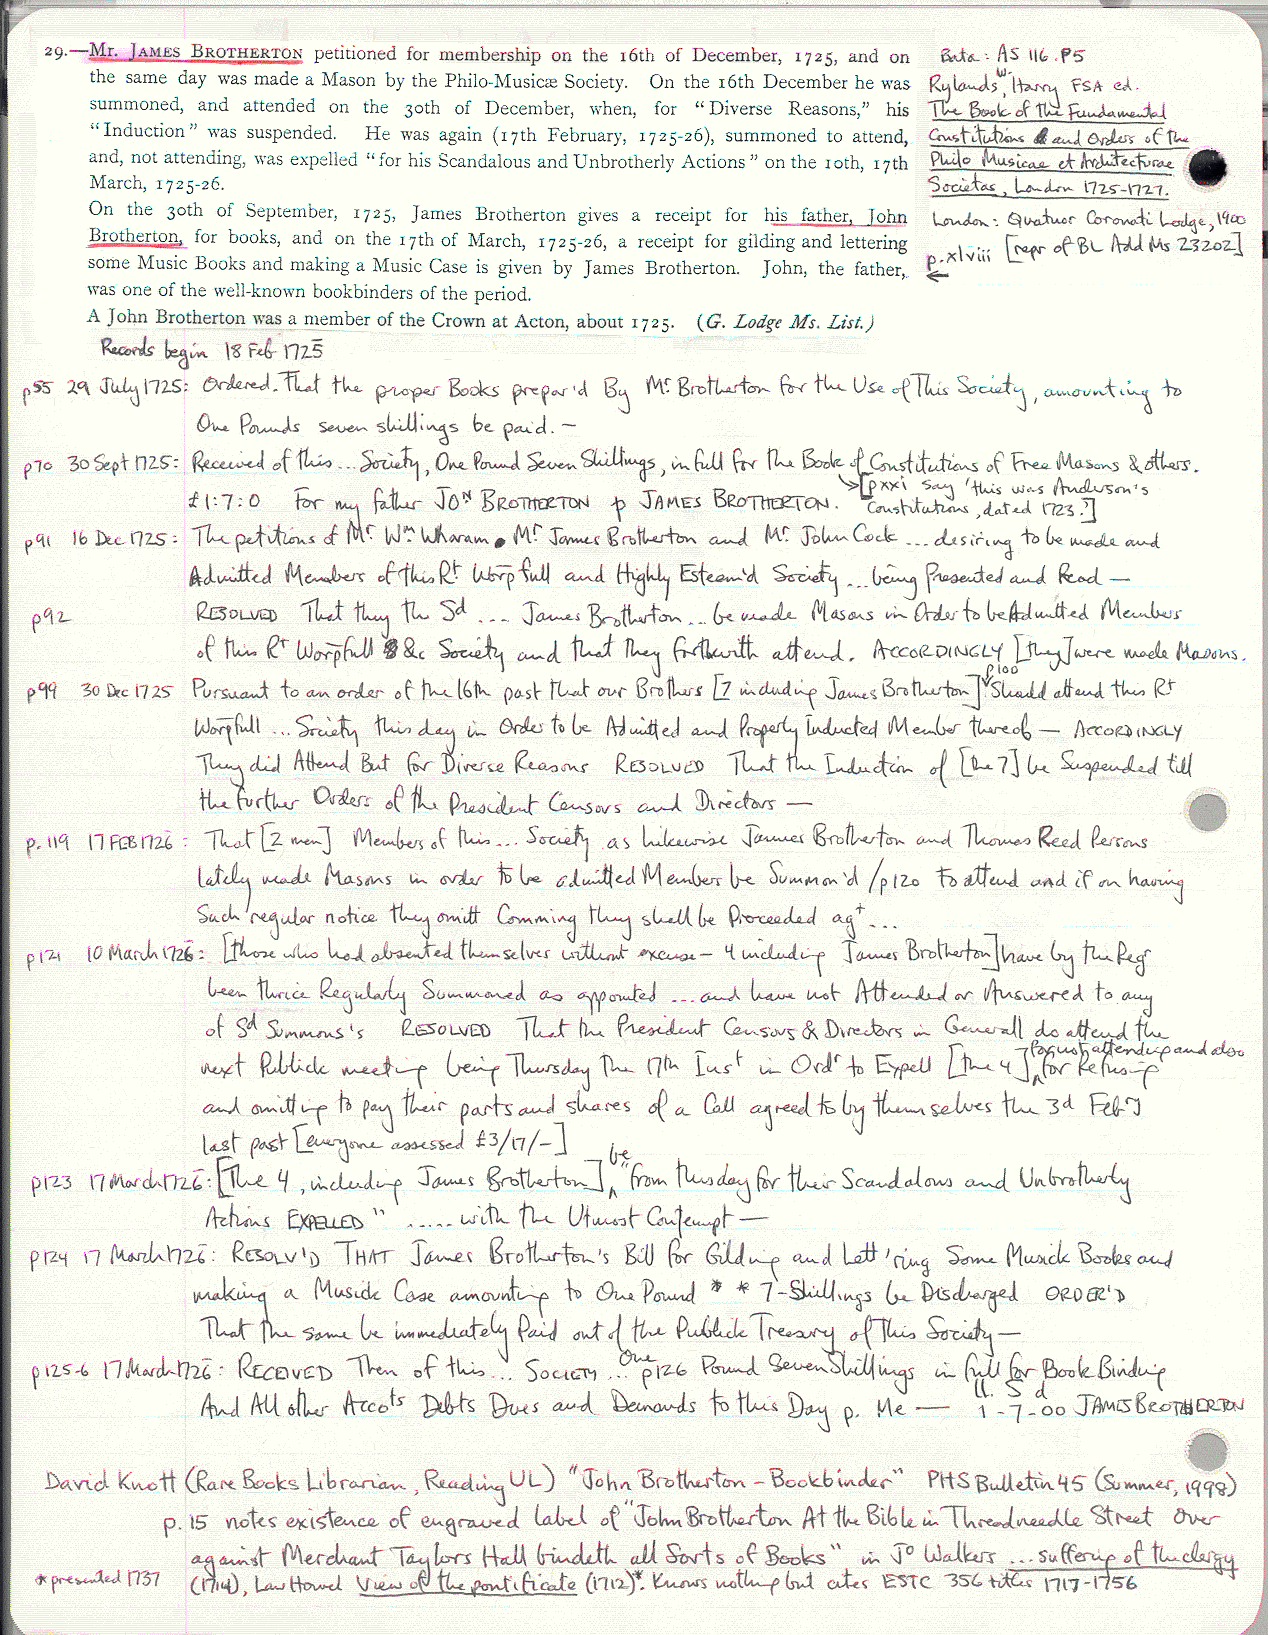 29.—Mr. James Brotherton petitioned for membership on the 16th of December, 1725, and on
the same day was made a Mason by the Philo-Musicæ Society. On the 16th December he was
summoned, and attended on the 30th of December, when, for "Diverse Reasons," his
"Induction" was suspended. He was again (17th February, 1725-26), summoned to attend,
and, not attending, was expelled "for his Scandalous and Unbrotherly Actions" on the 10th, 17th
March, 1725-26.
On the 30th of September, 1725, James Brotherton gives a receipt for his father, John
Brotherton, for books, and on the 17th of March, 1725-26, a receipt for gilding and lettering
some Music Books and making a Music Case is given by James Brotherton. John, the father,
was one of the well-known bookbinders of the period.
A John Brotherton was a member of the Crown at Acton, about 1725. (G. Lodge Ms. List.)
AS 116.P5
Rylands, W. Harry FSA ed.
The Book of the Fundamental
Constitutions and Orders of the
Philo Musicae et Architecturae
Societas, London 1725-1727.
London: Quatuor Coronati Lodge, 1900
p.xlviii [repr of BL Add Ms 23202]
Records begin 18 Feb 1725
p55 29 July 1725: Ordered. That the proper Books prepar'd By Mr Brotherton for the Use of This Society, amounting to
One Pounds seven shillings be paid. —
p70 30 Sept 1725: Received of this... Society, One Pound Seven Shillings, in full for the Book of Constitutions of Free Masons & others.
£1:7:0 For my father JON BROTHERTON p JAMES BROTHERTON. [pxxi say 'this was Anderson's
Constitutions, dated 1723.']
p91 16 Dec 1725: The petitions of Mr Wm Wharam Mr James Brotherton and Mr John Cock ... desiring to be made and
Admitted Members of this Rt Worpfull and Highly Esteem'd Society ... being Presented and Read —
p92 RESOLVED That they the Sd .... James Brotherton... be made Masons in Order to be Admitted Members
of this Rt Worpfull &c Society and that they forthwith attend. ACCORDINGLY [they] were made Masons.
p99 30 Dec 1725 Pursuant to an order of the 16th past that our Brothers [7 including James Brotherton] p100 Should attend this Rt
Worpfull ... Society this day in Order to be Admitted and Properly Inducted Member thereof — ACCORDINGLY
They did Attend But for Diverse Reasons RESOLVED That the Induction of [the 7] be Suspended till
the further Orders of the President Censors and Directors —
p.119 17 FEB 1726: That [2 men] Members of this... Society as likewise James Brotherton and Thomas Reed Persons
lately made Masons in order to be admitted Members be Summon'd /p120 to attend and if on having
Such regular notice they omitt Comming they shall be Proceeded agt ...
p121 10 March 1726: [those who had absented themselves without excuse — 4 including James Brotherton] have by the Regr
been thrice Regularly Summoned as appointed ... and have not Attended or Answered to any
of Sd Summons's RESOLVED That the President Censors & Directors in Generall do attend the
next Publick meeting being Thursday the 17th Inst in Ordr to Expell [the 4] for not attending and also for Refusing
and omitting to pay their parts and shares of a Call agreed to by themselves the 3d Feby
last past [everyone assessed £3/17/-]
p123 17 March 1726: [The 4, including James Brotherton] be "from Thisday for their Scandalous and Unbrotherly
Actions EXPELLED" ..... with the Utmost Contempt —
p124 17 March 1726: RESOLV'D THAT James Brotherton's Bill for Gilding and Lett'ring Some Musick Books and
making a Musick Case amounting to One Pound * * 7-Shillings be Discharged ORDER'D
That the same be immediately Paid out of the Publick Treasury of This Society —
p125-6 17 March 1726: RECEIVED Then of this ... SOCIETY ... One p126 Pound Seven Shillings in full for Book Binding
And All other Accots Debts Dues and Demands to this Day p. Me — ll. S d 1-7-00 JAMES BROTHERTON
David Knott (Rare Books Librarian, Reading UL) "John Brotherton – Bookbinder" PHS Bulletin 45 (Summer, 1998)
p.15 notes existence of engraved label of "John Brotherton At the Bible in Threadneedle Street Over
against Merchant Taylors Hall bindeth all Sorts of Books" in Jo Walkers ... suffering of the clergy
*presented 1737 (1714), Law Howel View of the pontificate (1712)*. Knows nothing but cites ESTC 356 titles 1717-1756